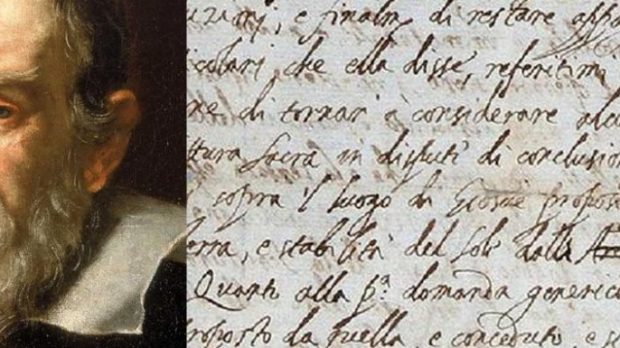 e finalm di restare
icolari, che ella disse, referitimi
ne di tornar à considerare alcu
ttura Sacra in disputi di conclusion
sopra 'l luogo di Giosuè propost
erra, e stabilità del Sole dalla
Quanto alla pª domanda generica
roposto da quella, e conceduto, e st